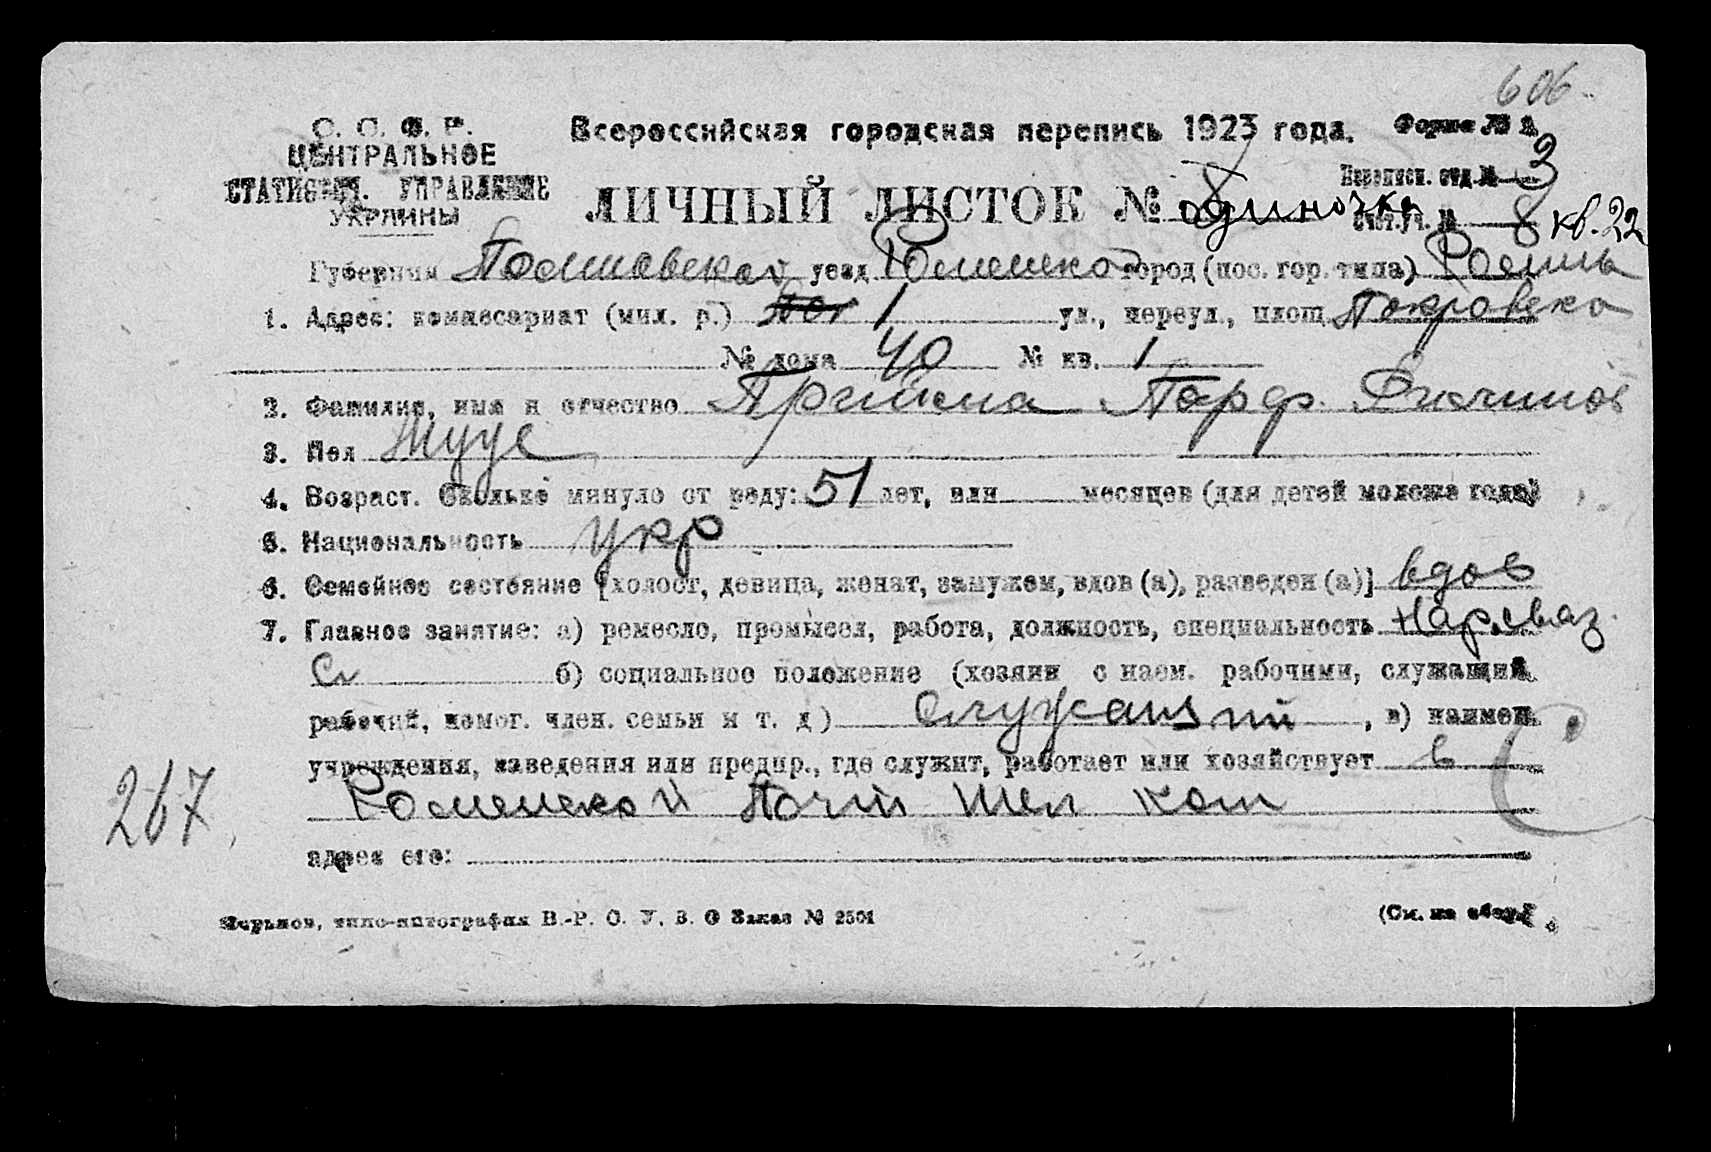 606
С. С. С. Р.
ЦЕНТРАЛЬНОЕ
СТАТИСТИЧ. УПРАВЛЕНИЕ
УКРАИНЫ
Всероссийская городская перепись 1923 года.
Форма № 2
ЛИЧНЫЙ ЛИСТОК № одиночка
Переписн. отд. № 3
Счет. уч. № 8 кв. 22
Губерния Полтавской уезд Роменско город (пос. гор. типа) Ромны
1. Адрес: комиссариат (мил. р.) 1 ул., переул., площ. Покровска
№ дома 40 № кв. 1
2. Фамилия, имя и отчество Прийма Парф.
3. Пол Муж
4. Возраст. Сколько минуло от роду: 51 лет, или месяцев (для детей моложе года)
5. Национальность укр
6. Семейное состояние [холост, девица, женат, замужем, вдов (а), разведен (а)] вдов
7. Главное занятие: а) ремесло, промысел, работа, должность, специальность Нар. связ.
б) социальное положение (хозяин с наем. рабочими, служащий
рабочий, помог. член. семьи и т. д.) Служащий, в) наимен.
учреждения, заведения или предпр., где служит, работает или хозяйствует в
Роменской Почт Тел Конт
адрес его:
267
Харьков, типо-литография В.-Р. О. У. З. О Заказ № 2501
(См. на обор.)